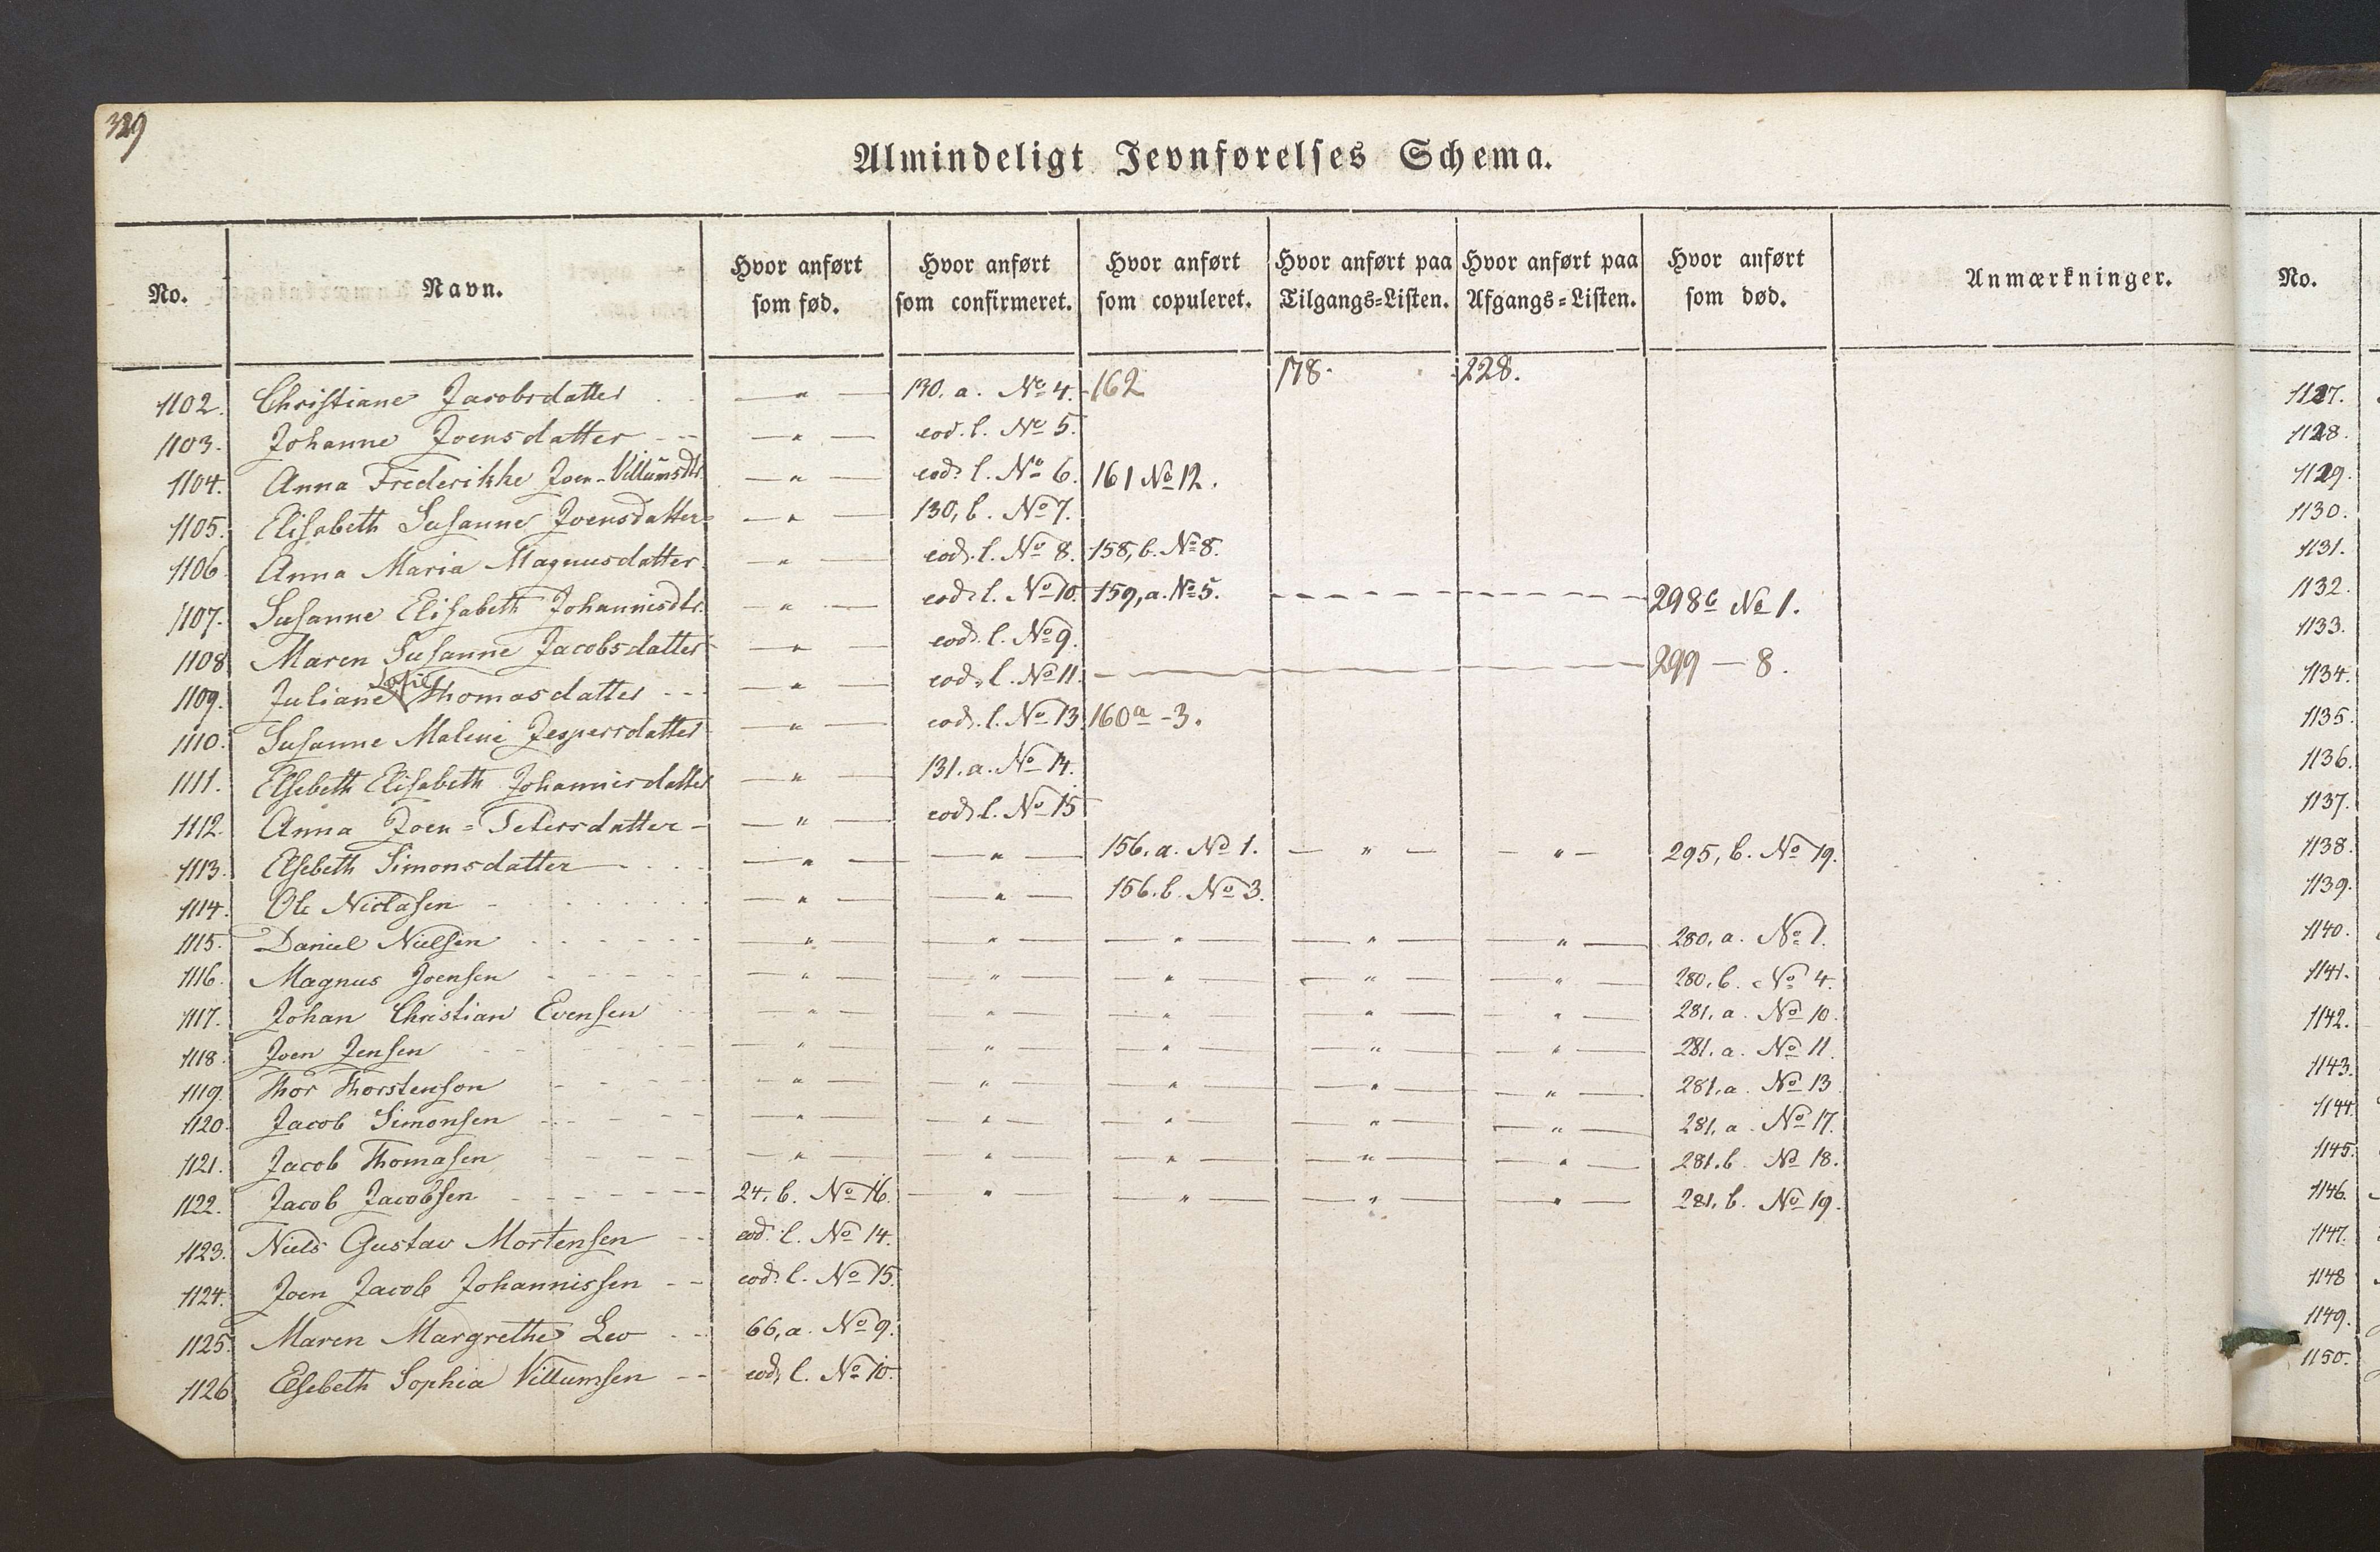 329
Almindeligt Jevnførelses Schema.
No. Navn. Hvor anført som fød. Hvor anført som confirmeret. Hvor anført som copuleret. Hvor anført paa Tilgangs=Listen. Hvor anført paa Afgangs=Listen. Hvor anført som død. Anmærkninger. No.
1102. Christiane Jacobsdatter - - — " — 130. a. No 4. 162 178. 228.
1103. Johanne Joensdatter - - — " — eod. l. No 5.
1104. Anna Frederikke Joen-Villumsdtr. — " — eod. l. No 6. 161 No 12.
1105. Elisabeth Susanne Joensdatter — " — 130, b. No 7.
1106. Anna Maria Magnusdatter. — " — eod. l. No 8. 158, b. No 8.
1107. Susanne Elisabeth Johannisdtr. — " — eod. l. No 10. 159, a. No 5. - - - - 298 b No 1.
1108 Maren Susanne Jacobsdatter — " — eod. l. No 9.
1109. Juliane Sofie Thomasdatter - - — " — eod. l. No 11. — — — 299 — 8.
1110. Susanne Malene Jespersdatter — " — eod. l. No 13 160 a - 3.
1111. Elsebeth Elisabeth Johannisdatter — " — 131. a. No 14.
1112. Anna Joen=Petersdatter - — " — eod. l. No 15
1113. Elsebeth Simonsdatter - - — " — — " — 156. a. No 1. — " — — " — 295, b. No 19.
1114. Ole Niclasen - - - — " — — " — 156. b. No 3.
1115. Daniel Nielsen - - - — " — — " — — " — — " — — " — 280, a. No 1.
1116. Magnus Joensen - - - — " — — " — — " — — " — — " — 280, b. No 4.
1117. Johan Christian Evensen - - — " — — " — — " — — " — — " — 281, a. No 10.
1118. Joen Jensen - - - — " — — " — — " — — " — — " — 281. a. No 11.
1119. Thor Thorstenson - - - — " — — " — — " — — " — — " — 281, a. No 13
1120. Jacob Simonsen - - - — " — — " — — " — — " — — " — 281, a. No 17.
1121. Jacob Thomasen - - - — " — — " — — " — — " — — " — 281. b. No 18.
1122. Jacob Jacobsen - - - 24, b. No 16. — " — — " — — " — — " — 281, b. No 19.
1123. Niels Gustav Mortensen - - eod. l. No 14.
1124. Joen Jacob Johannissen - - eod. l. No 15.
1125. Maren Margrethe Lev - - 66, a. No 9.
1126 Elsebeth Sophia Villumsen - - eod. l. No 10.
1127.
1128.
1129.
1130.
1131.
1132.
1133.
1134.
1135.
1136.
1137.
1138.
1139.
1140.
1141.
1142.
1143.
1144.
1145.
1146.
1147.
1148
1149.
1150.